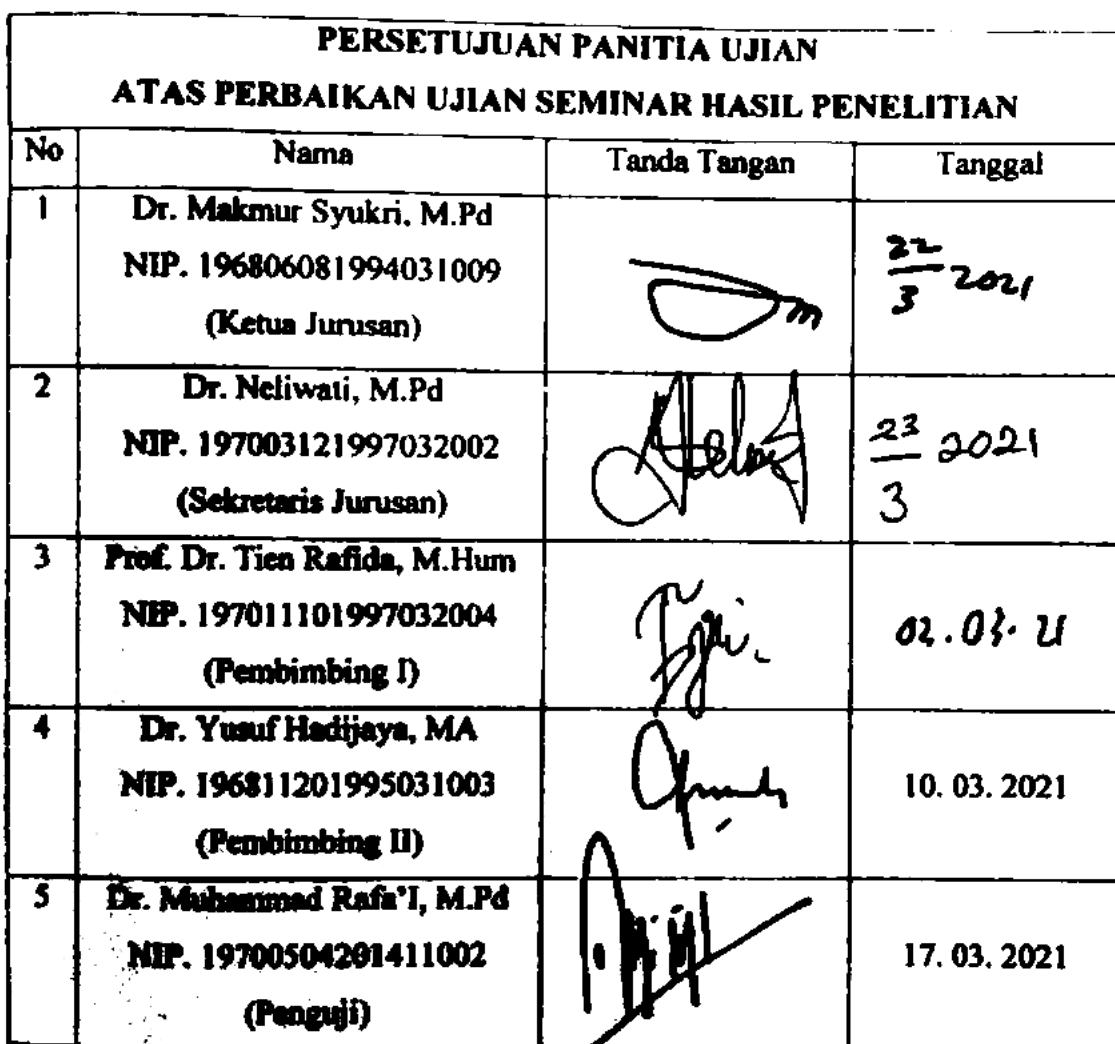 PERSETUJUAN PANITIA UJIAN
ATAS PERBAIKAN UJIAN SEMINAR HASIL PENELITIAN
No Nama Tanda Tangan Tanggal
1 Dr. Makmur Syukri, M.Pd
NIP. 196806081994031009
(Ketua Jurusan)
22/3 2021
2 Dr. Neliwati, M.Pd
NIP. 197003121997032002
(Sekretaris Jurusan)
23/3 2021
3 Prof. Dr. Tien Rafida, M.Hum
NIP. 197011101997032004
(Pembimbing I)
02.03.21
4 Dr. Yusuf Hadijaya, MA
NIP. 196811201995031003
(Pembimbing II)
10. 03. 2021
5 Dr. Muhammad Rafa'I, M.Pd
NIP. 19700504201411002
(Penguji)
17. 03. 2021